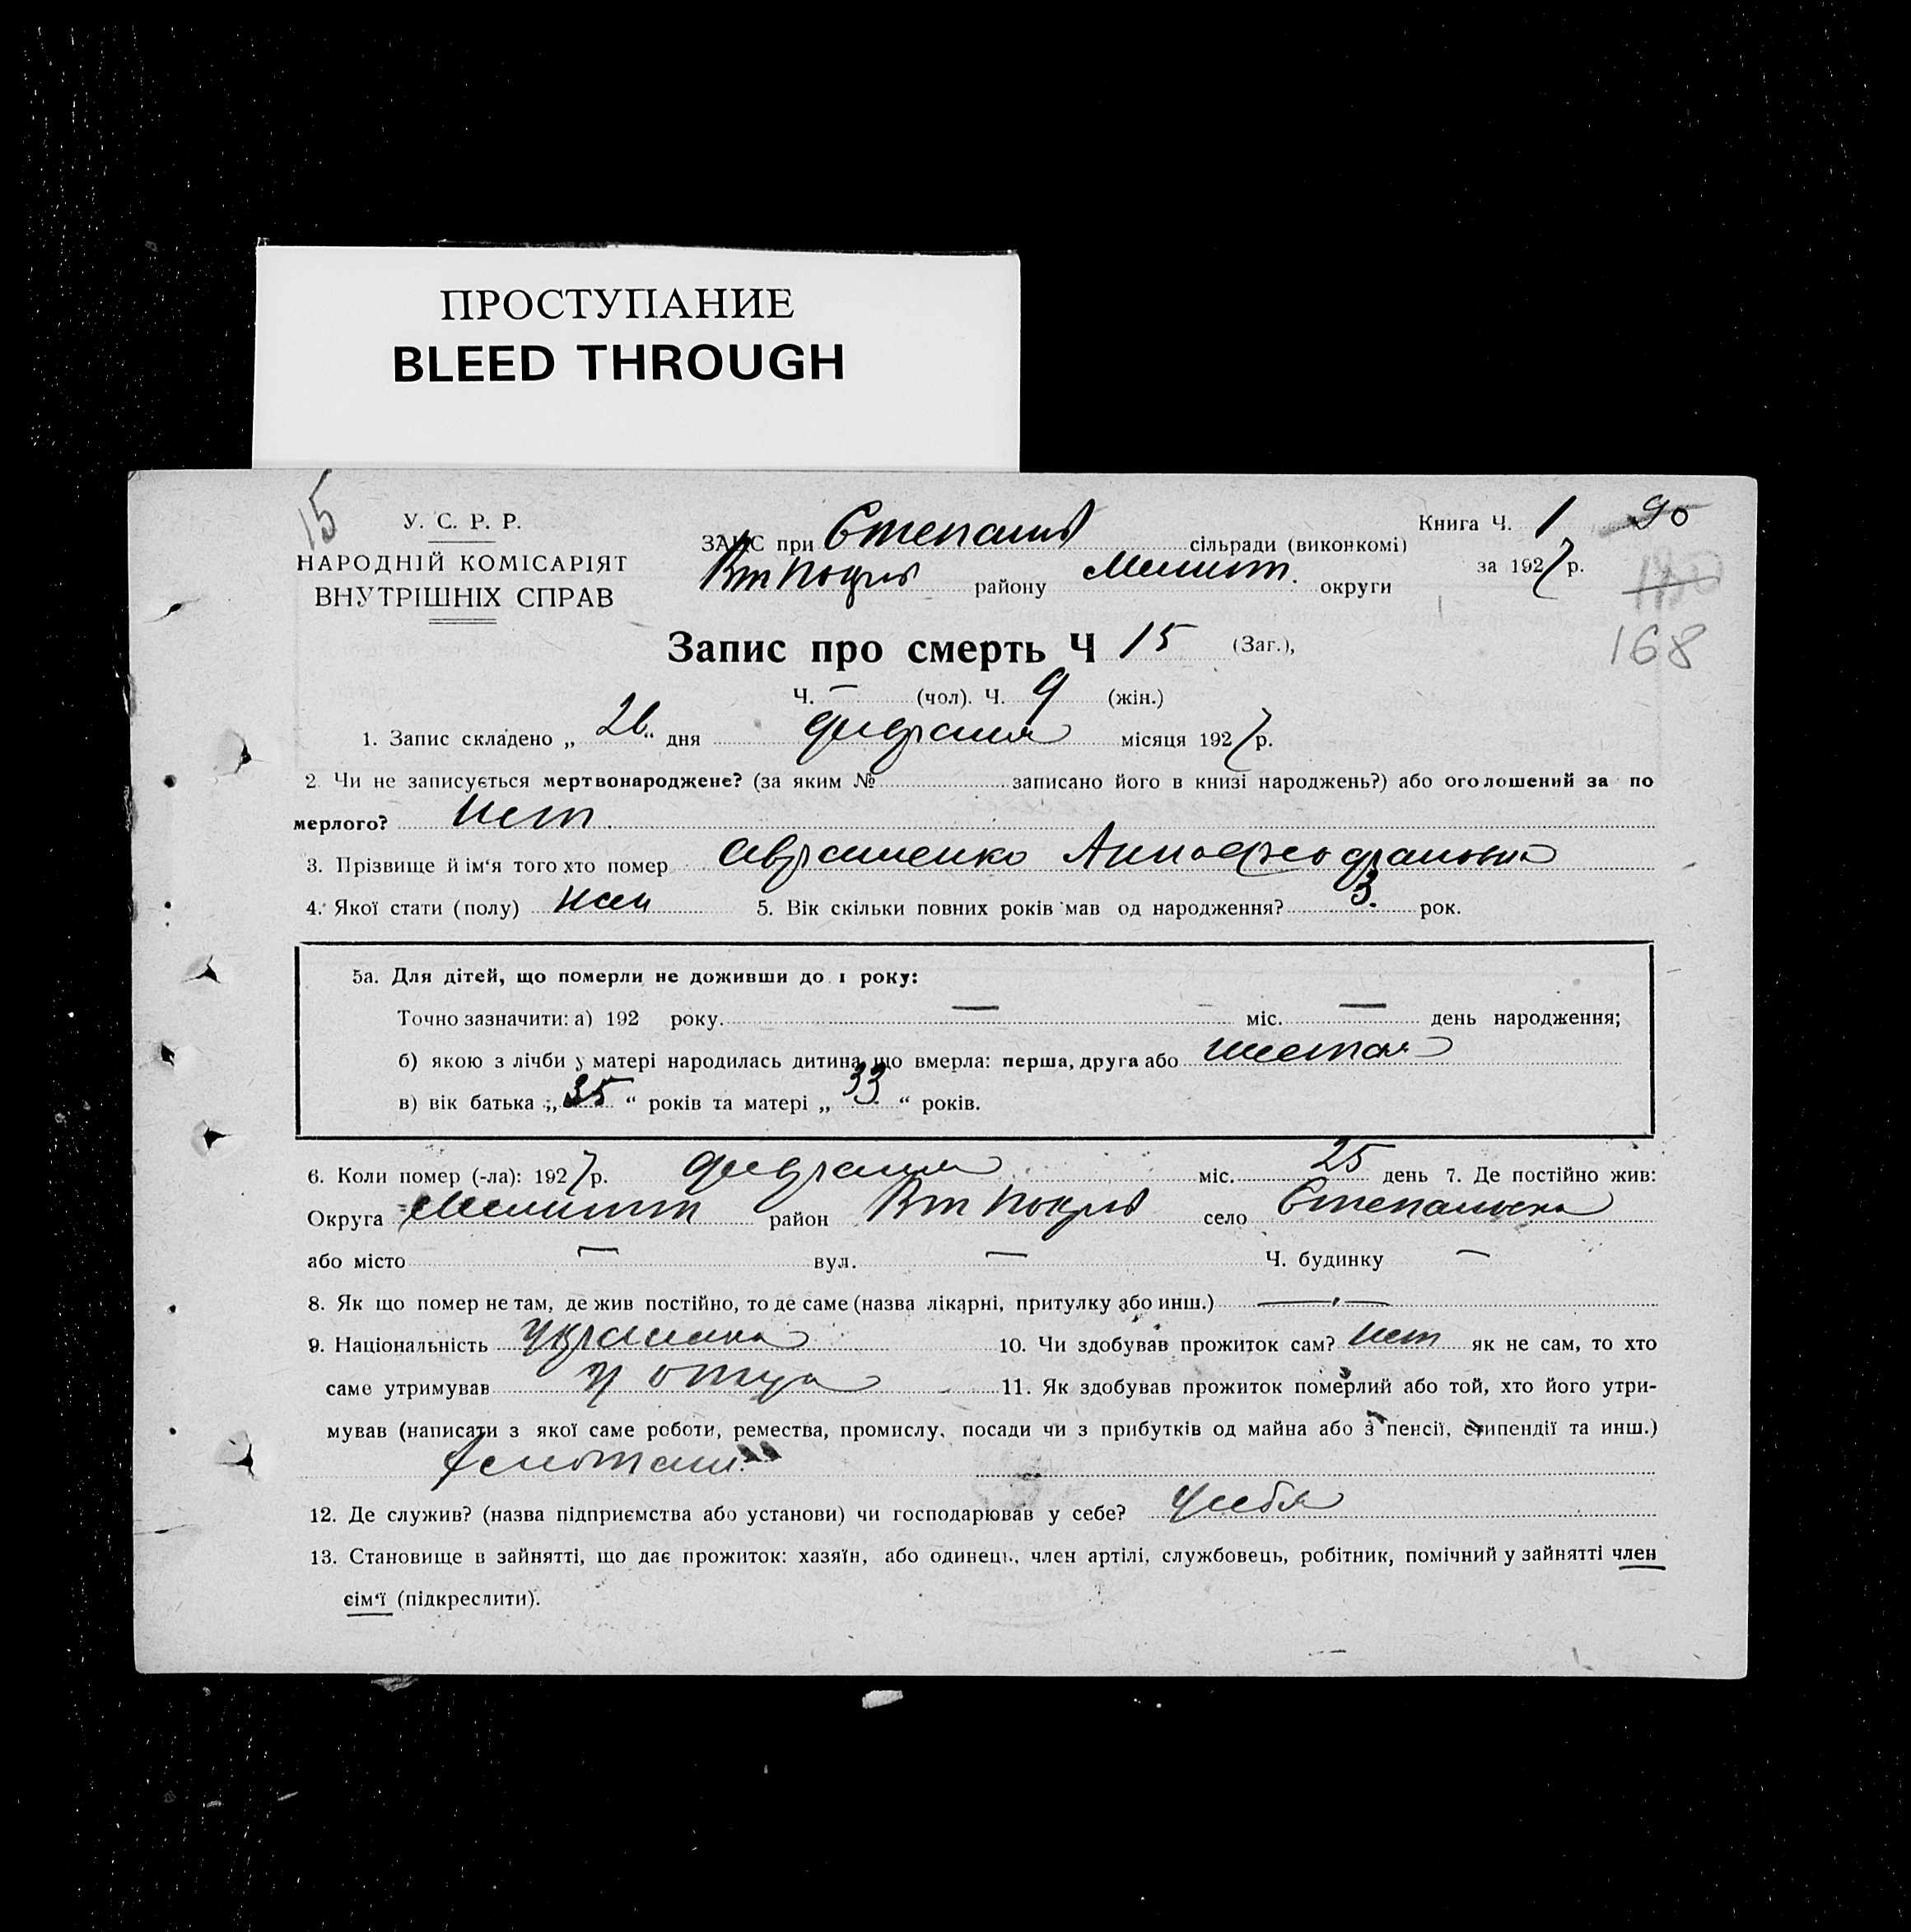 ПРОСТУПАНИЕ
BLEED THROUGH
15
У. С. Р. Р.
НАРОДНІЙ КОМІСАРІЯТ
ВНУТРІШНІХ СПРАВ
ЗАГС при Степанів сільради (виконкомі)
Вт Покрів району Мелит. округи
Книга Ч. 1 90
за 1927 р.
168
Запис про смерть Ч 15 (Заг.),
Ч. — (чол). Ч. 9 (жін.)
1. Запис складено „ 26 “ дня февраля місяця 1927 р.
2. Чи не записується мертвонароджене? (за яким № записано його в книзі народжень?) або оголошений за по
мерлого? нет
3. Прізвище й ім‘я того хто помер Авраменко Анна
4. Якої стати (полу) жен 5. Вік скільки повних років мав од народження? 3 рок.
5а. Для дітей, що померли не доживши до 1 року:
Точно зазначити: а) 192 року. — міс. — день народження;
б) якою з лічби у матері народилась дитина що вмерла: перша, друга або шестая
в) вік батька „ 35 “ років та матері „ 33 “ років.
6. Коли помер (-ла): 1927 р. февраля міс. 25 день 7. Де постійно жив:
Округа Мелитт район Вт Покрів село Степановка
або місто — вул. — Ч. будинку —
8. Як що помер не там, де жив постійно, то де саме (назва лікарні, притулку або инш.) —
9. Національність Украинка 10. Чи здобував прожиток сам? нет як не сам, то хто
саме утримував у отца 11. Як здобував прожиток померлий або той, хто його утри-
мував (написати з якої саме роботи, ремества, промислу, посади чи з прибутків од майна або з пенсії, стипендії та инш.)
12. Де служив? (назва підприємства або установи) чи господарював у себе? у себя
13. Становище в зайнятті, що дає прожиток: хазяїн, або одинець, член артілі, службовець, робітник, помічний у зайнятті член
сім‘ї (підкреслити).